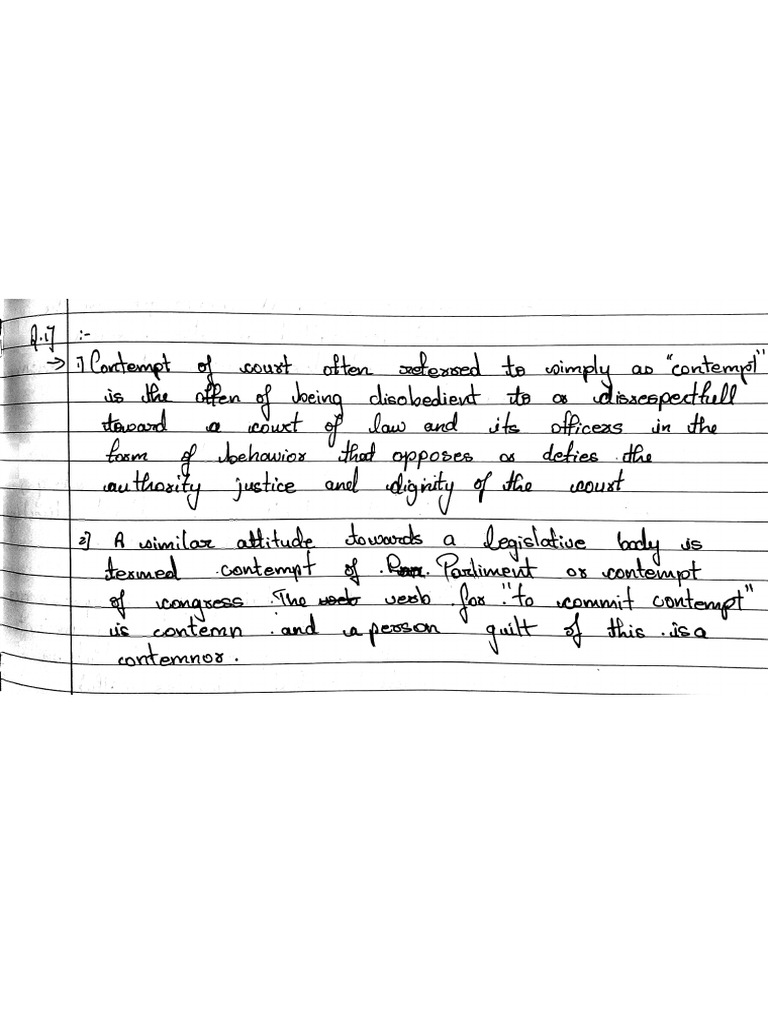 Q.1] :-
→ 1) Contempt of court often referred to simply as "contempt"
is the offen of being disobedient to or disrespectfull
toward a court of law and its officers in the
form of behavior that opposes or defies the
authority justice and dignity of the court
2] A similar attitude towards a legislative body is
termed contempt of Parliment or contempt
of congress. The verb for "to commit contempt"
is contemn and a person guilt of this is a
contemnor.